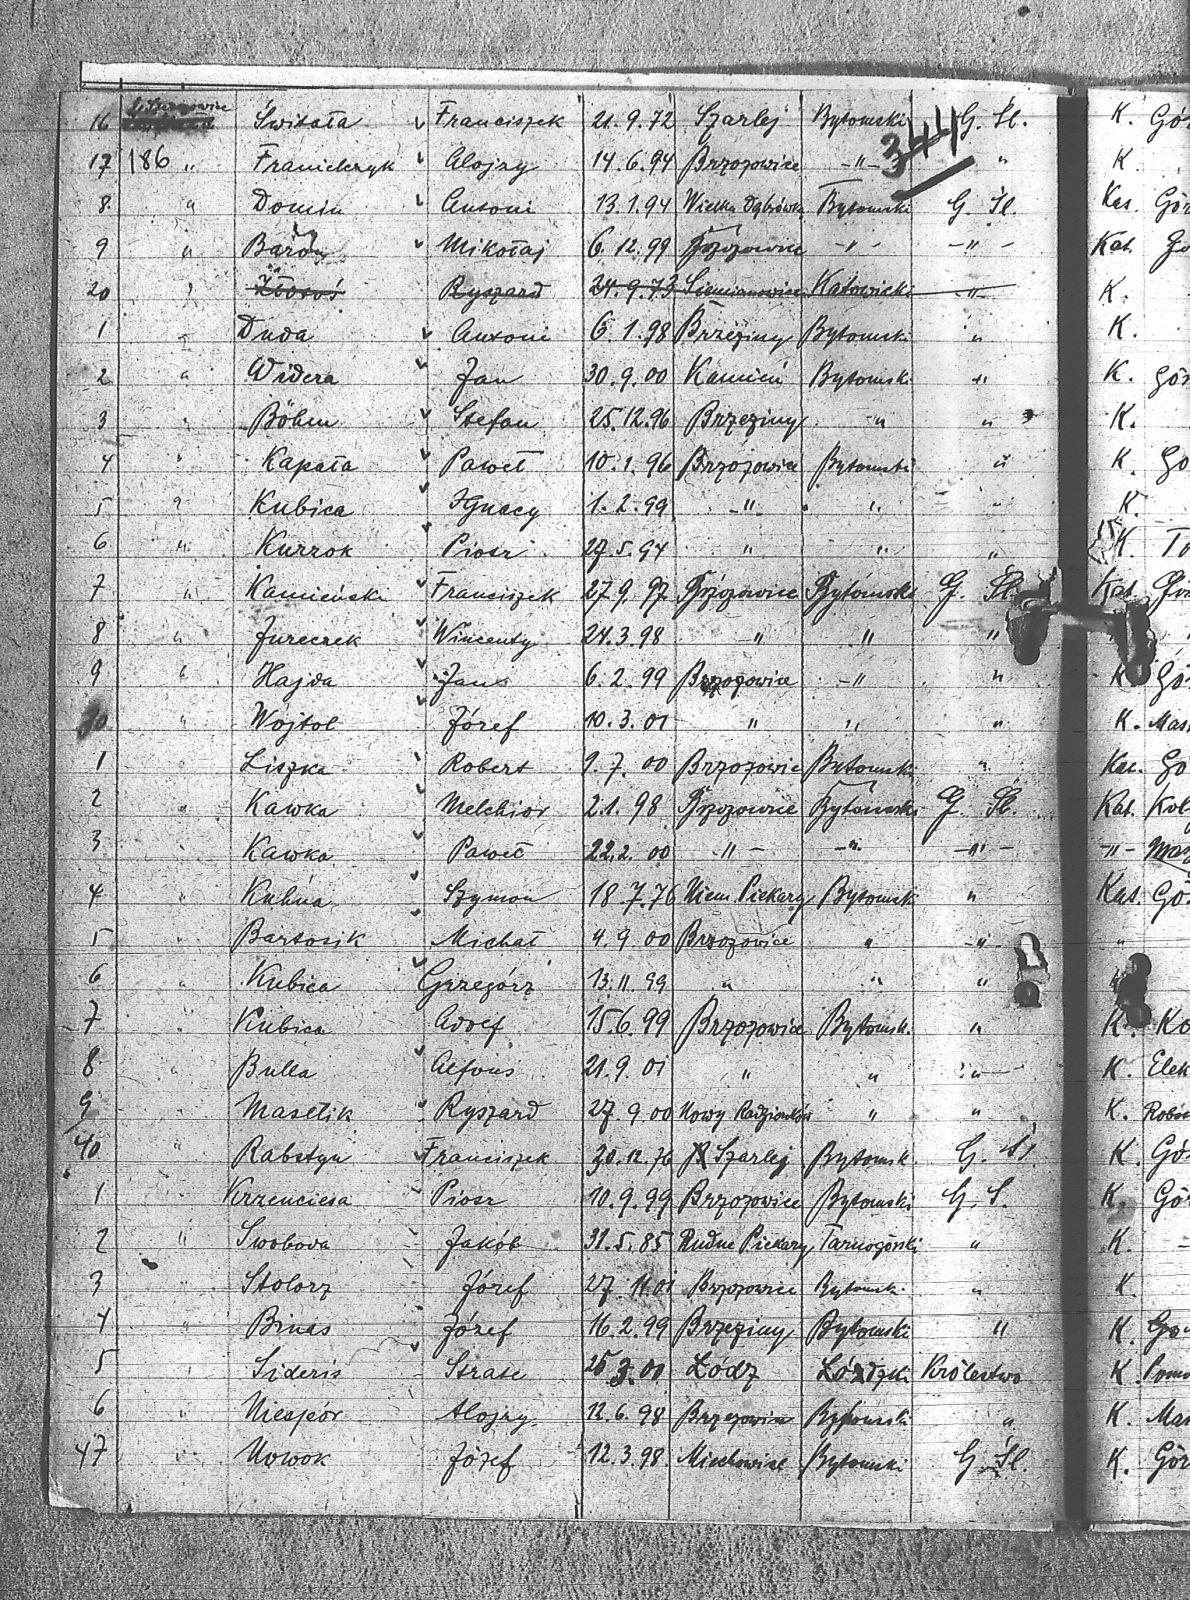 16 Świtała Franciszek 21.9.72 Szarlej Bytomski G. Śl. K.
341
17 186 " Franiczyk Alojzy 14.6.94 Brzozowice -"- " K
8 " Domin Antoni 13.1.94 Wielka Dąbrówka Bytomski G. Śl. Kat.
9 " Baron Mikołaj 6.12.99 Brzozowice -"- -"- Kat.
20 " Ryszard 24.9.73 Siemianowice Katowicki -"- K.
1 " Duda Antoni 6.1.98 Brzeziny Bytomski " K.
2 " Widera Jan 30.9.00 Kamień Bytomski " K.
3 " Böhm Stefan 25.12.96 Brzeziny " " K.
4 " Kapała Paweł 10.1.96 Brzozowice Bytomski " K.
5 " Kubica Ignacy 1.2.99 -"- " " K.
6 " Kurzok Piotr 27.5.94 " " " K.
7 " Kamieński Franciszek 27.9.97 Brzozowice Bytomski G. Śl. Kat.
8 " Jureczek Wincenty 24.3.98 " " "
9 " Hajda Jan 6.2.99 Brzozowice -"- " K
30 " Wojtol Józef 10.3.01 " " " K.
1 Liszka Robert 9.7.00 Brzozowice Bytomski " Kat.
2 " Kawka Melchior 2.1.98 Brzozowice Bytomski G. Śl. Kat.
3 " Kawka Paweł 22.2.00 -"- -"- -"- -"-
4 " Kuhna Szymon 18.7.76 Niem Piekary Bytomski " Kat.
5 " Bartosik Michał 4.9.00 Brzozowice " -"- "
6 " Kubica Grzegórz 13.11.99 " " "
7 " Kubica Adolf 15.6.99 Brzozowice Bytomsk. " K.
8 " Bulla Alfons 21.9.01 " " " K.
9 " Maselik Ryszard 27.9.00 Nowy Radzionków " " K.
40 " Rabstyn Franciszek 30.12.76 Szarlej Bytomsk. G. Śl K.
1 Krzenciesa Piotr 10.9.99 Brzozowice Bytomski G. S. K.
2 " Swoboda Jakób 31.5.85 Rudne Piekary Tarnogórski " K.
3 " Stolorz Józef 27.11.01 Brzozowice Bytomsk. " K.
4 " Binas Józef 16.2.99 Brzeziny Bytomski " K.
5 " Sideris Strate 25.3.00 Łódz Łódzki Królestwo K
6 " Niespór Alojzy 12.6.98 Bytomski " K.
47 " Nowok Józef 12.3.98 Miechowice Bytomski G. Śl. K.